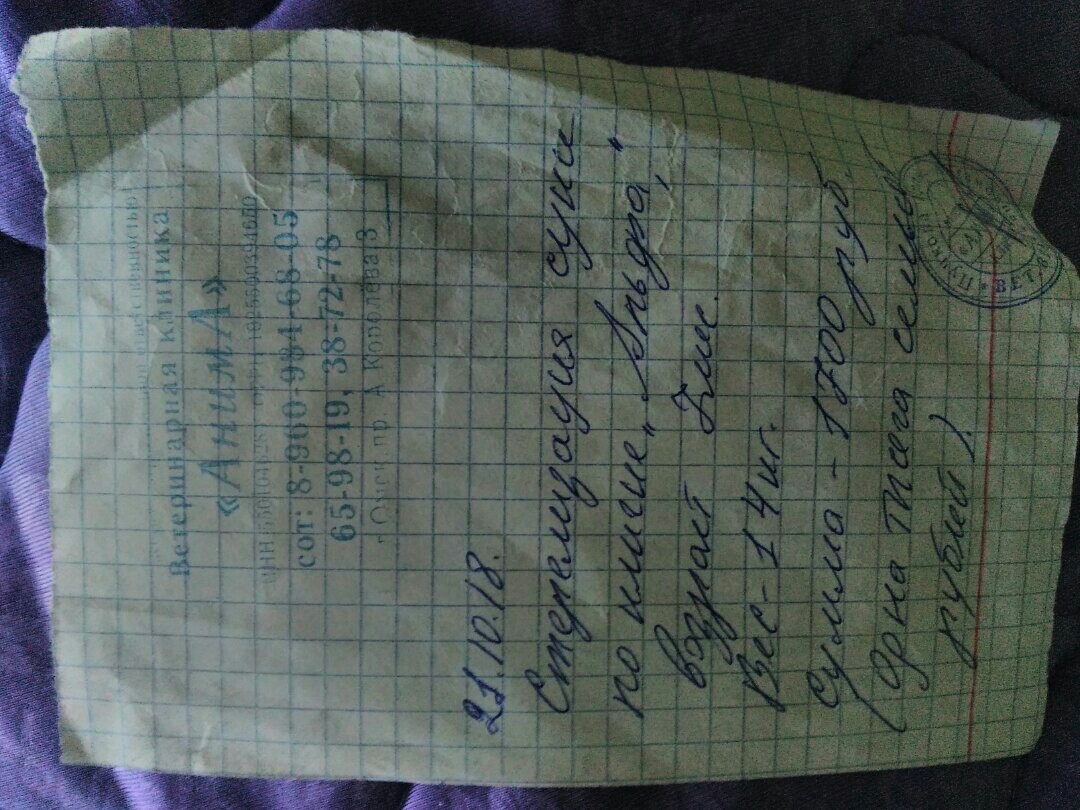 ответственностью
Ветеринарная клиника
«АнимА»
сот: 8-960-984-68-05
65-98-19, 38-72-78
г Омск, пр. А Королёва 3
21.10.18.
Стерелизация суки
по кличке „
возраст 7 мес.
Вес - 14 кг.
Сумма - 1700 руб.
(Одна тысяга семьсот
рублей).
ВЕТ